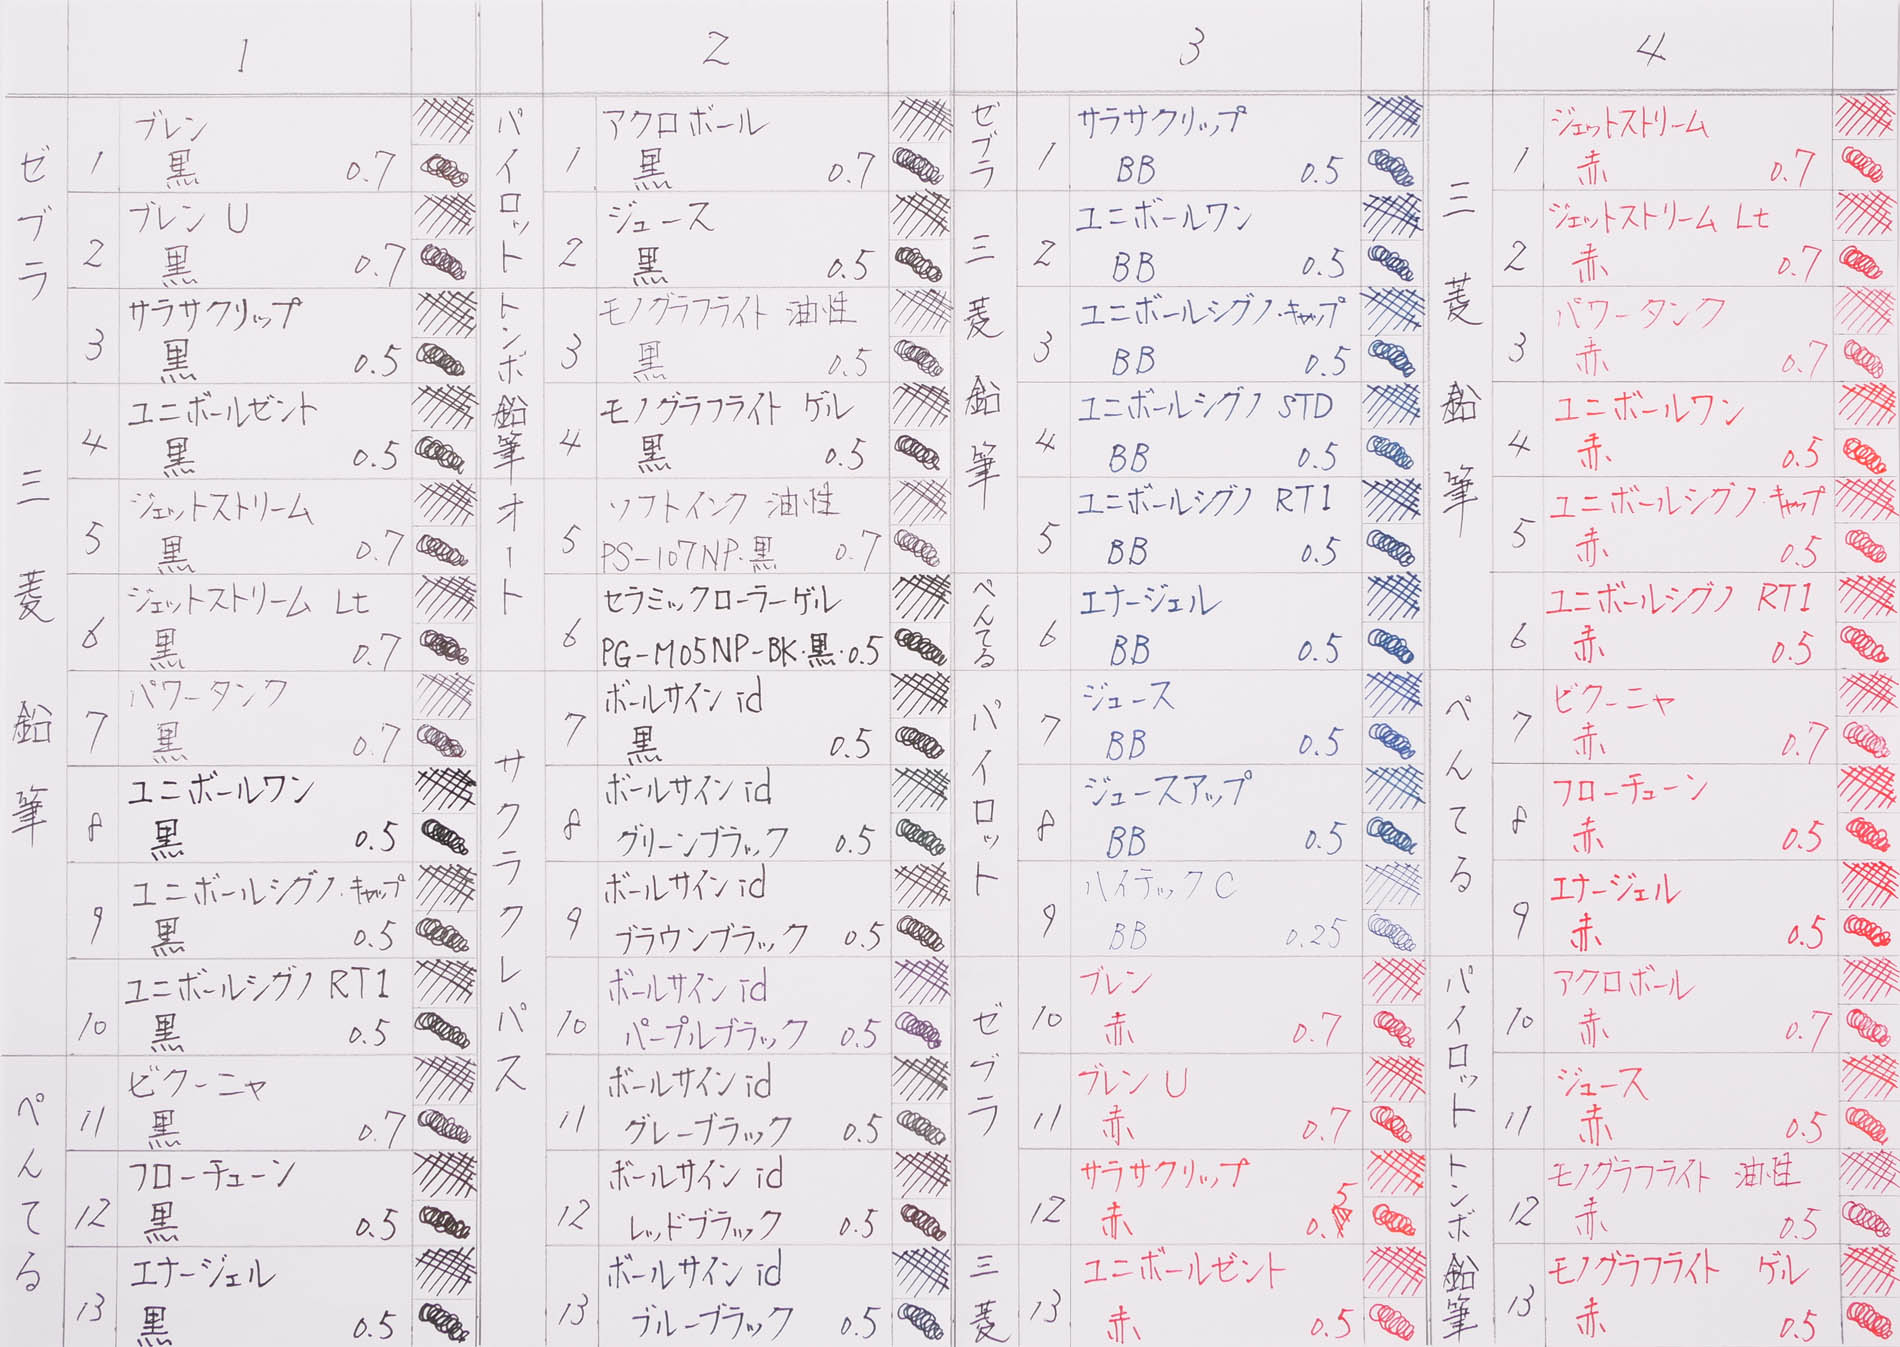 1
ゼブラ
1
ブレン
黒 0.7
2
ブレン U
黒 0.7
3
サラサクリップ
黒 0.5
三菱鉛筆
4
ユニボールゼント
黒 0.5
5
ジェットストリーム
黒 0.7
6
ジェットストリーム Lt
黒 0.7
7
パワータンク
黒 0.7
8
ユニボールワン
黒 0.5
9
ユニボールシグノ・キャップ
黒 0.5
10
ユニボールシグノ RT1
黒 0.5
ぺんてる
11
ビクーニャ
黒 0.7
12
フローチューン
黒 0.5
13
エナージェル
黒 0.5
2
パイロット
1
アクロボール
黒 0.7
2
ジュース
黒 0.5
トンボ鉛筆
3
モノグラフライト 油性
黒 0.5
4
モノグラフライト ゲル
黒 0.5
オート
5
ソフトインク 油性
PS-107NP・黒 0.7
6
セラミックローラーゲル
PG-M05NP-BK・黒・0.5
サクラクレパス
7
ボールサイン id
黒 0.5
8
ボールサイン id
グリーンブラック 0.5
9
ボールサイン id
ブラウンブラック 0.5
10
ボールサイン id
パープルブラック 0.5
11
ボールサイン id
グレーブラック 0.5
12
ボールサイン id
レッドブラック 0.5
13
ボールサイン id
ブルーブラック 0.5
3
ゼブラ
1
サラサクリップ
BB 0.5
三菱鉛筆
2
ユニボールワン
BB 0.5
3
ユニボールシグノ・キャップ
BB 0.5
4
ユニボールシグノ STD
BB 0.5
5
ユニボールシグノ RT1
BB 0.5
ぺんてる
6
エナージェル
BB 0.5
パイロット
7
ジュース
BB 0.5
8
ジュースアップ
BB 0.5
9
ハイテックC
BB 0.25
ゼブラ
10
ブレン
赤 0.7
11
ブレン U
赤 0.7
12
サラサクリップ
赤 0.5
三菱
13
ユニボールゼント
赤 0.5
4
三菱鉛筆
1
ジェットストリーム
赤 0.7
2
ジェットストリーム Lt
赤 0.7
3
パワータンク
赤 0.7
4
ユニボールワン
赤 0.5
5
ユニボールシグノ・キャップ
赤 0.5
6
ユニボールシグノ RT1
赤 0.5
ぺんてる
7
ビクーニャ
赤 0.7
8
フローチューン
赤 0.5
9
エナージェル
赤 0.5
パイロット
10
アクロボール
赤 0.7
11
ジュース
赤 0.5
トンボ鉛筆
12
モノグラフライト 油性
赤 0.5
13
モノグラフライト ゲル
赤 0.5